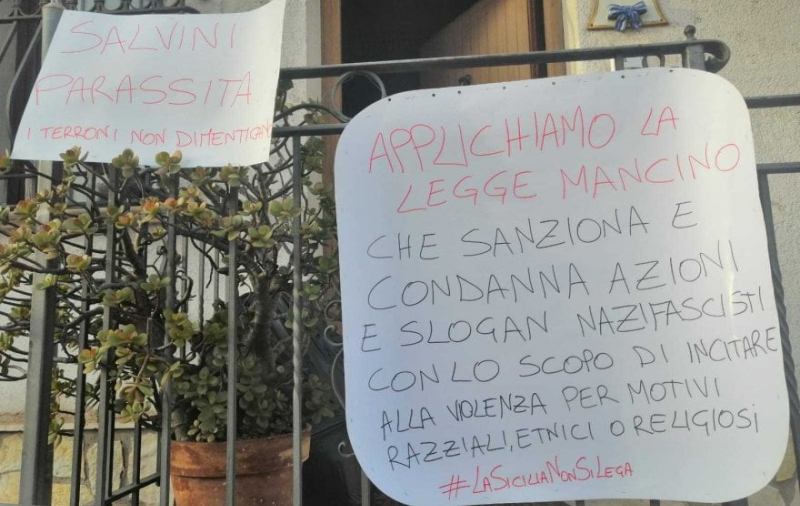 SALVINI
PARASSITA
I TERRONI NON DIMENTICANO
APPLICHIAMO LA
LEGGE MANCINO
CHE SANZIONA E
CONDANNA AZIONI
E SLOGAN NAZIFASCISTI
CON LO SCOPO DI INCITARE
ALLA VIOLENZA PER MOTIVI
RAZZIALI, ETNICI O RELIGIOSI
#LASICILIANONSILEGA